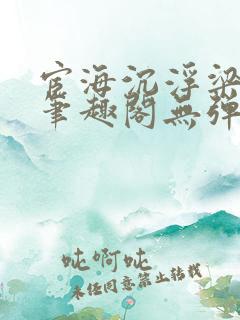 宦海沉浮梁
笔趣阁无弹
吨啊吨
未经同意禁止转载